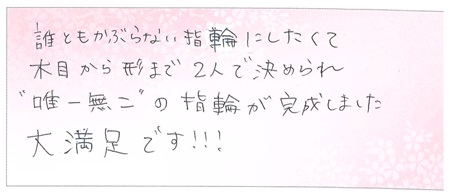 誰ともかぶらない指輪にしたくて
木目から形まで2人で決められ
"唯一無二"の指輪が完成しました
大満足です!!!